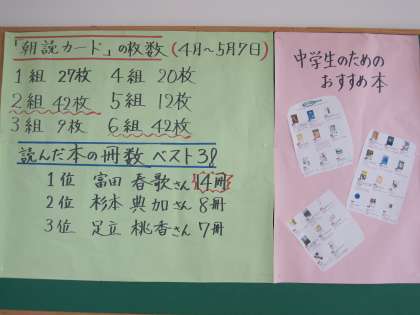 「朝読カード」の枚数(4月~5月7日)
1組 27枚 4組 20枚
2組 42枚 5組 12枚
3組 9枚 6組 42枚
読んだ本の冊数 ベスト3!
1位 富田 春歌さん 14冊
2位 杉本 典加さん 8冊
3位 足立 桃香さん 7冊
中学生のための
おすすめ本